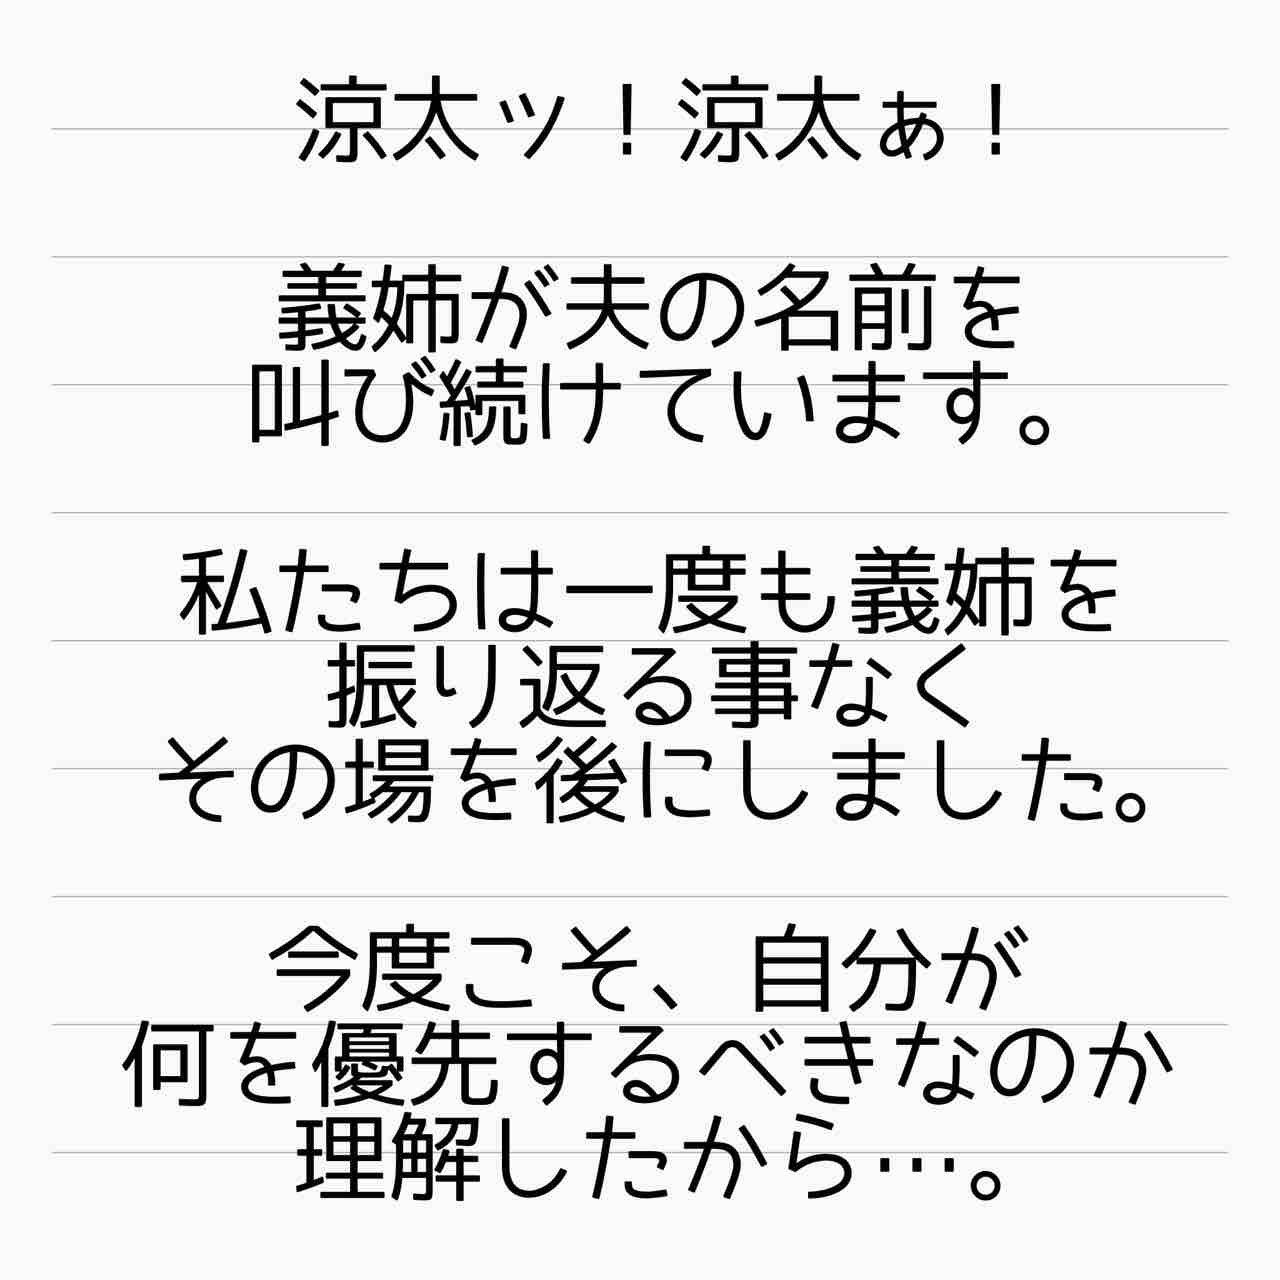 涼太ッ！涼太ぁ！
義姉が夫の名前を
叫び続けています。
私たちは一度も義姉を
振り返る事なく
その場を後にしました。
今度こそ、自分が
何を優先するべきなのか
理解したから…。